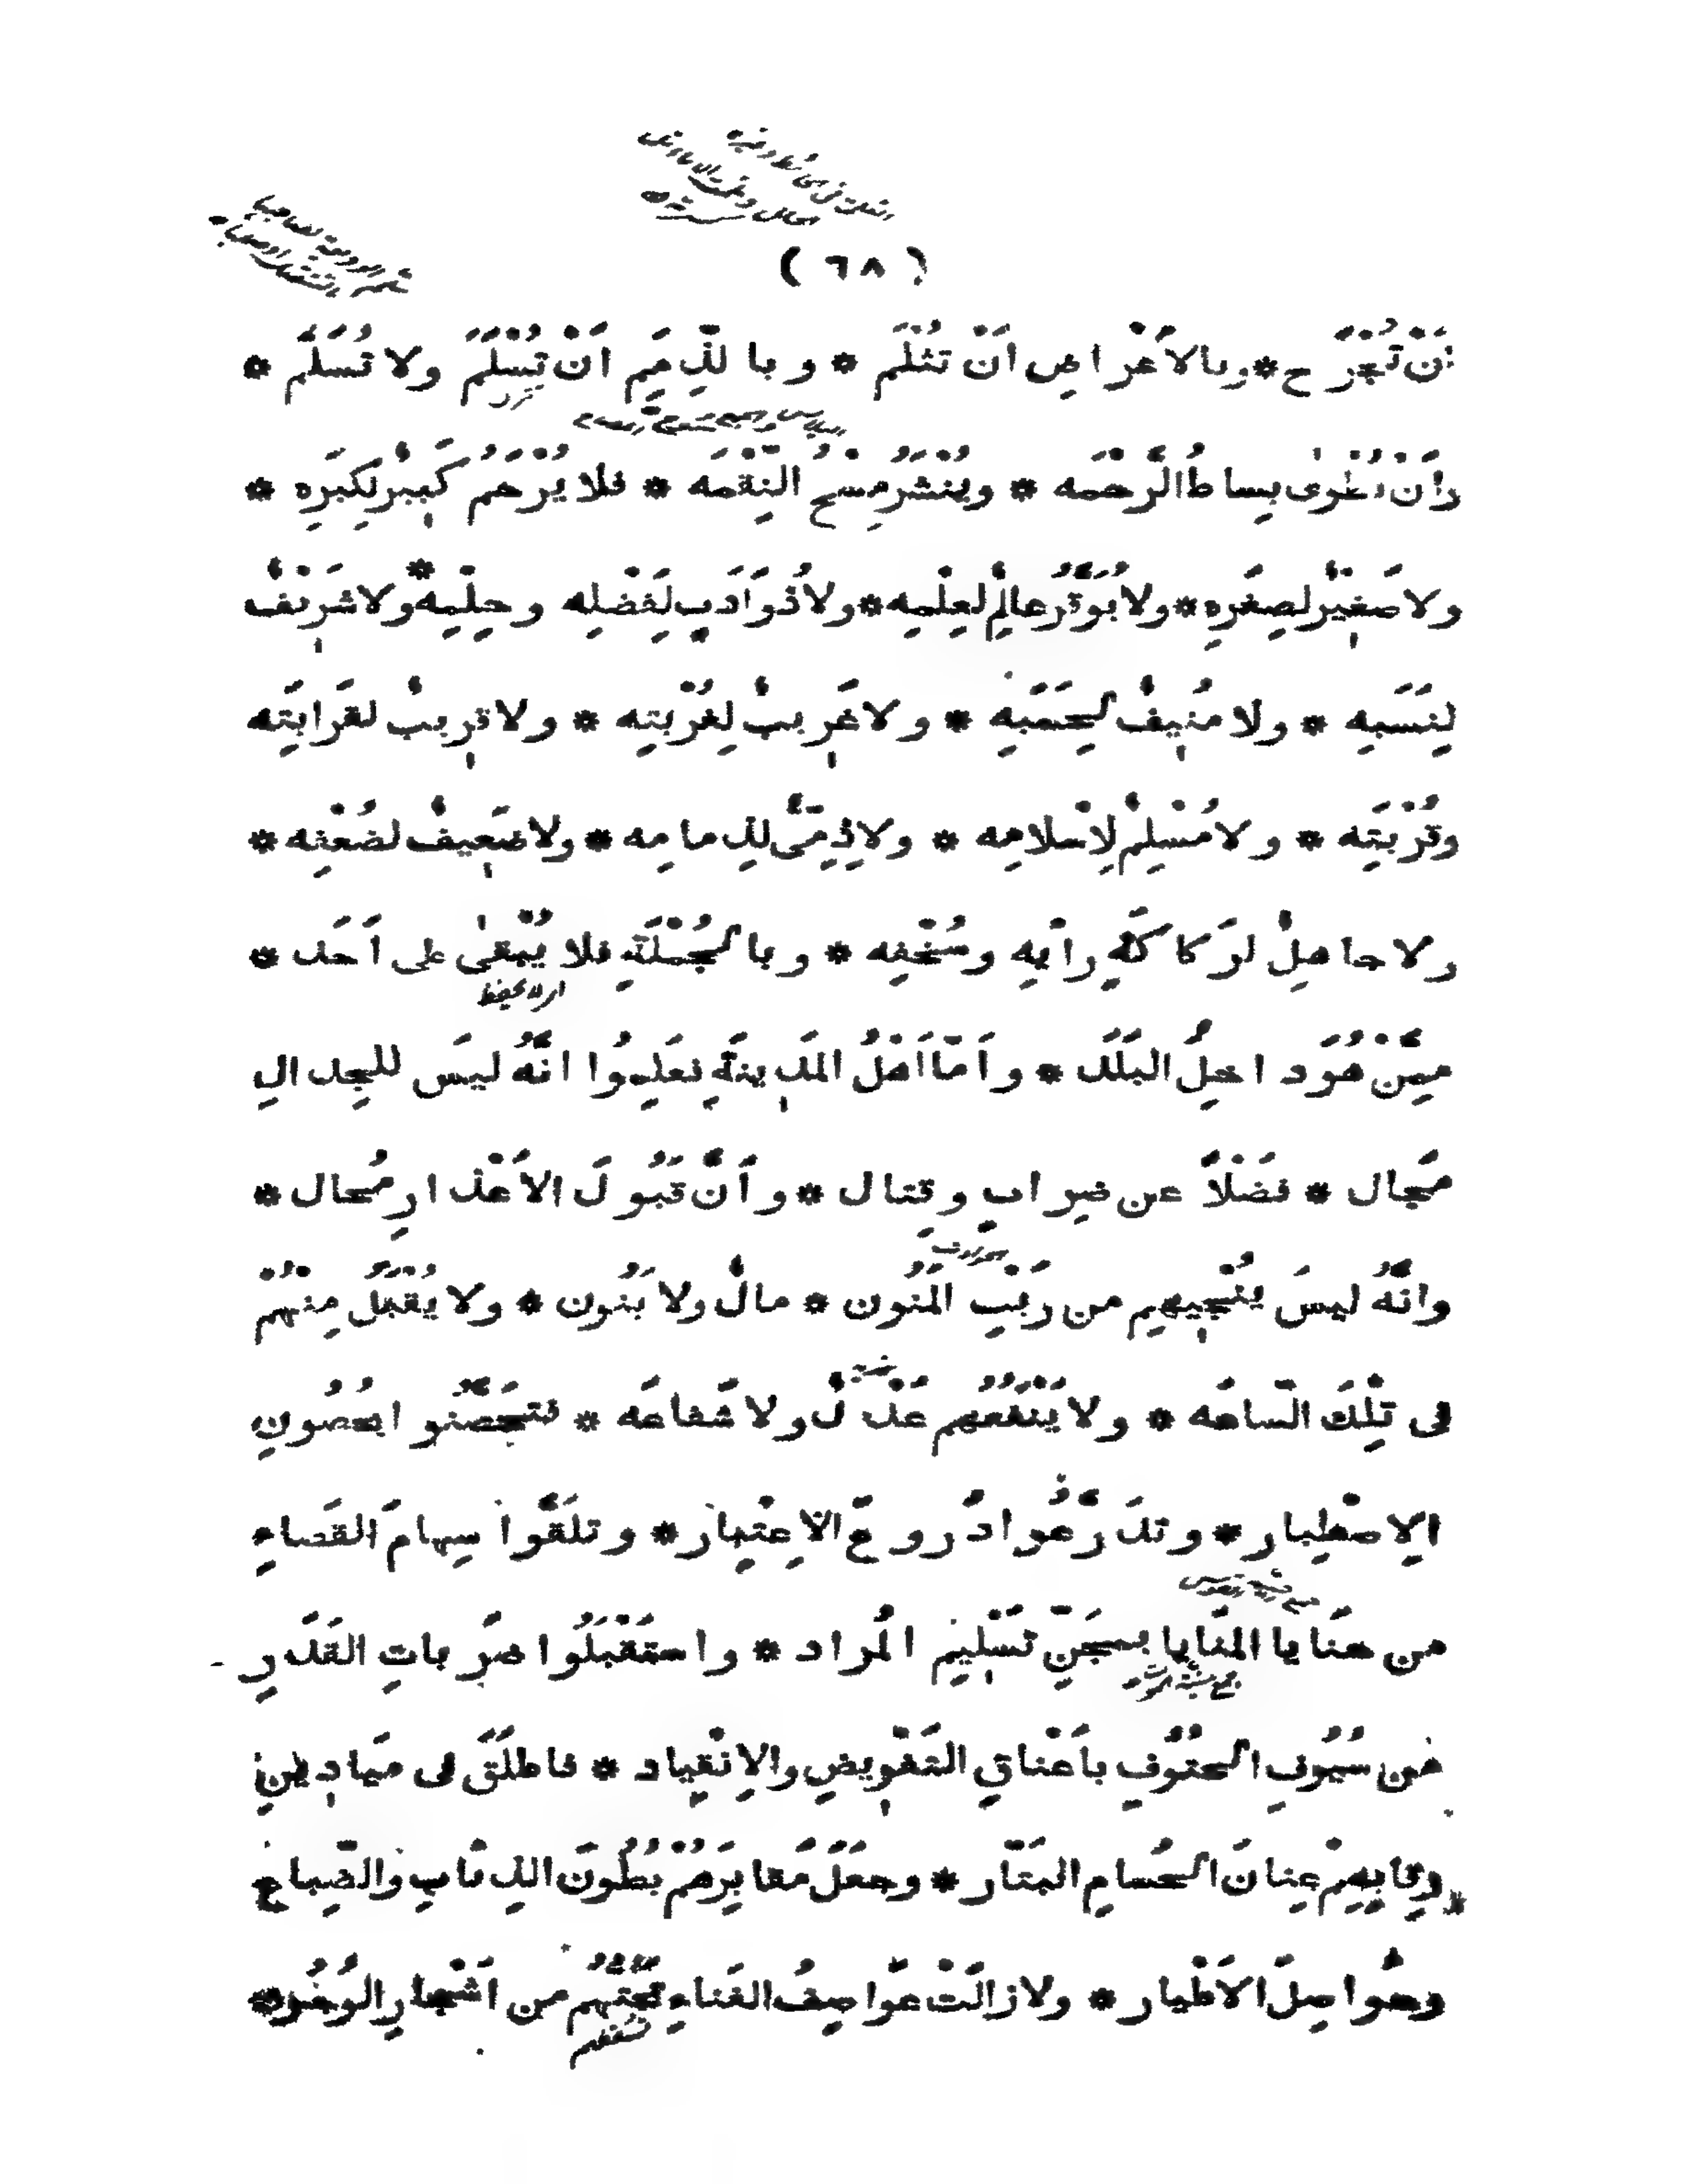 ( ٦٨ )
اَنْ تُجْرَح * وبالاَعْراضِ اَنْ تُثْلَم * وبالذِّمَمِ اَنْ تُسْلَمَ ولا تُسَلَّم *
واَنْ يُطْوىٰ بِساطُ الرَّحْمَه * ويُنْشَرَ مِسْحُ النِّقْمَه * فلا يُرْحَمُ كَبِيْرٌ لِكِبَرِه *
ولا صَغِيْرٌ لِصِغَرِهِ * ولا يُوَقَّرُ عالِمٌ لِعِلْمِه * ولا ذُو اَدَبٍ لِفَضْلِه وحِلْمِه * ولا شَرِيْفٌ
لِنَسَبِه * ولا مُنِيفٌ لِحَسَبِه * ولا غَرِيبٌ لِغُرْبَتِه * ولا قرِيبٌ لقَرابَتِه
وقُرْبَتِه * ولا مُسْلِمٌ لِاِسْلامِه * ولا ذِمِّىٌّ لِذِمامِه * ولا ضَعِيفٌ لضُعْفِه *
ولا جاهِلٌ لرَكاكَةِ رأيِه وسُخْفِه * وبالجُمْلَةِ فلا يُبْقىٰ على اَحَد *
مِمَّنْ هُوَ داخِلُ البَلَد * واَمّا اَهْلُ المَدِينَةِ فعَلِمُوا انَّهُ ليسَ للجِدالِ
مَجال * فضْلاً عن ضِرابٍ وقِتال * واَنَّ قَبُولَ الاَعْذارِ مُحال *
وانَّهُ ليسَ يُنْجِيهِم من رَيْبِ المَنُون * مالٌ ولا بَنُون * ولا يُقْبَلُ مِنْهُمْ
فى تِلْكَ السّاعَه * ولا يَنْفَعُهُم عَدْلٌ ولا شَفاعَه * فتحَصَّنُوا بحُصُونِ
الاِصْطِبار * وتدَرَّعُوا دُرُوعَ الاِعْتِبار * وتلَقَّوا سِهامَ القَضاءِ
من حَنايا المَنايا بمِجَنِّ تَسْلِيمِ المُراد * واستَقْبَلُوا ضَرَباتِ القَدَرِ
من سُيُوفِ الحُتُوفِ باَعْناقِ التَّفْوِيضِ والاِنْقِياد * فاطلَقَ فى مَيادِينِ
رِقابِهِمْ عِنانَ الحُسامِ البَتّار * وجعَلَ مَقابِرَهُمْ بُطُونَ الذِئابِ والضِّباع *
وحَواصِلَ الاَطْيار * ولا زالَتْ عَواصِفُ الفَناءِ تَحُتُّهُم من اَشْجارِ الوُجُود *